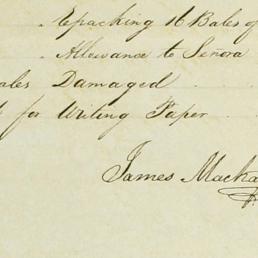 Epacking 16 Bales of
Allowance to Señora
ales Damaged
for Writing Paper
James Macka